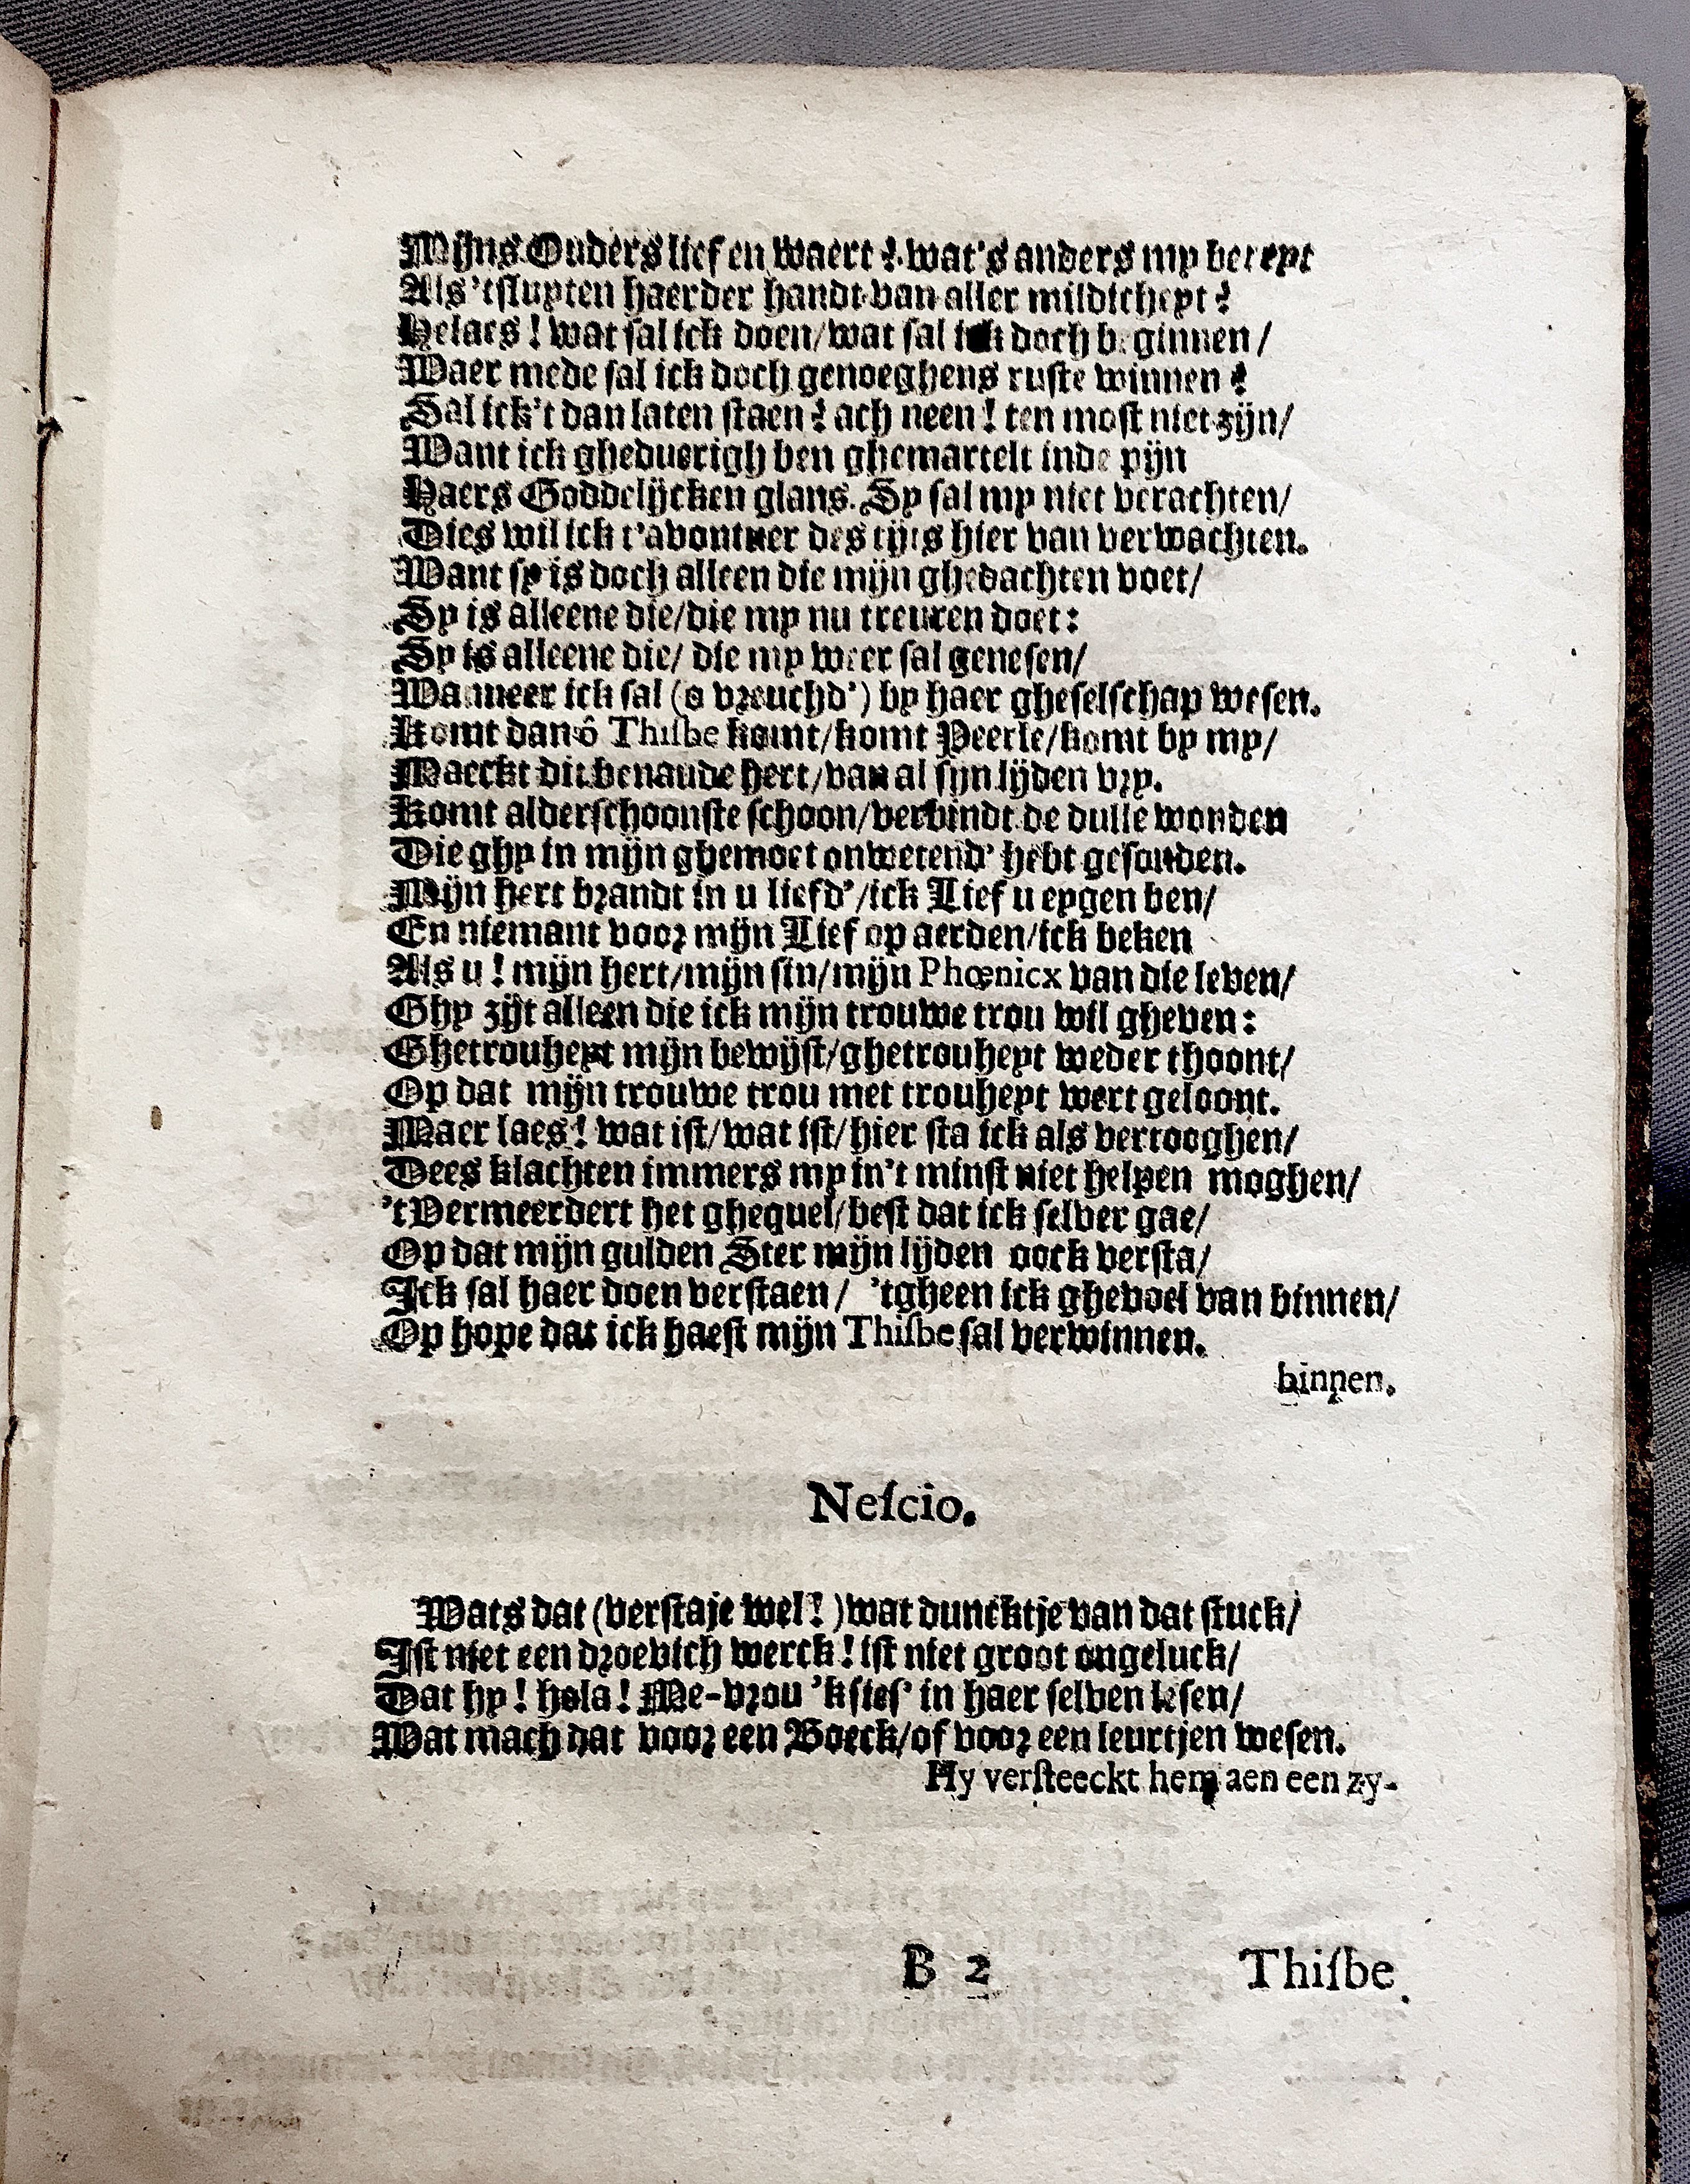 Mijns Ouders lief en waert? wat's anders my bereyt
Als 'tsluyten haerder handt van aller mildicheyt?
Helaes! wat sal ick doen/wat sal ick doch beginnen/
Waer mede sal ick doch genoeghens ruste winnen?
Sal ick't dan laten staen? ach neen! ten most niet zijn/
Want ick gheduerigh ben ghemartelt inde pijn
Haers Goddelijcken glans. Sy sal my niet verachten/
Dies wil ick t'avontuer des tijts hier van verwachten.
Want sy is doch alleen die mijn ghedachten voet/
Sy is alleene die/die my nu treuren doet:
Sy is alleene die/ die my weer sal genesen/
Wanneer ick sal (o vreuchd') by haer gheselschap wesen.
Komt dan ô Thisbe komt/komt Peerle/komt by my/
Maeckt dit benaude hert/van al sijn lijden vry.
Komt alderschoonste schoon/verbindt de dulle wonden
Die ghy in mijn ghemoet onwetend' hebt gesonden.
Mijn hert brandt in u liefd'/ick Lief u eygen ben/
En niemant voor mijn Lief op aerden/ick beken
Als u! mijn hert/mijn sin/mijn Phœnicx van die leven/
Ghy zijt alleen die ick mijn trouwe trou wil gheven:
Ghetrouheyt mijn bewijst/ghetrouheyt weder thoont/
Op dat mijn trouwe trou met trouheyt wert geloont.
Maer laes! wat ist/wat ist/hier sta ick als vertooghen/
Dees klachten immers my in't minst niet helpen moghen/
't Vermeerdert het ghequel/best dat ick selver gae/
Op dat mijn gulden Ster mijn lijden oock versta/
Ick sal haer doen verstaen/ 'tgheen ick ghevoel van binnen/
Op hope dat ick haest mijn Thisbe sal verwinnen.
binnen.
Nescio.
Wats dat (verstaje wel!) wat duncktje van dat stuck/
Ist niet een droevich werck! ist niet groot ongeluck/
Dat hy! hola! Me-vrou 'k sies' in haer selven lesen/
Wat mach dat voor een Boeck/of voor een leurtjen wesen.
Hy versteeckt hem aen een zy-
B 2
Thisbe